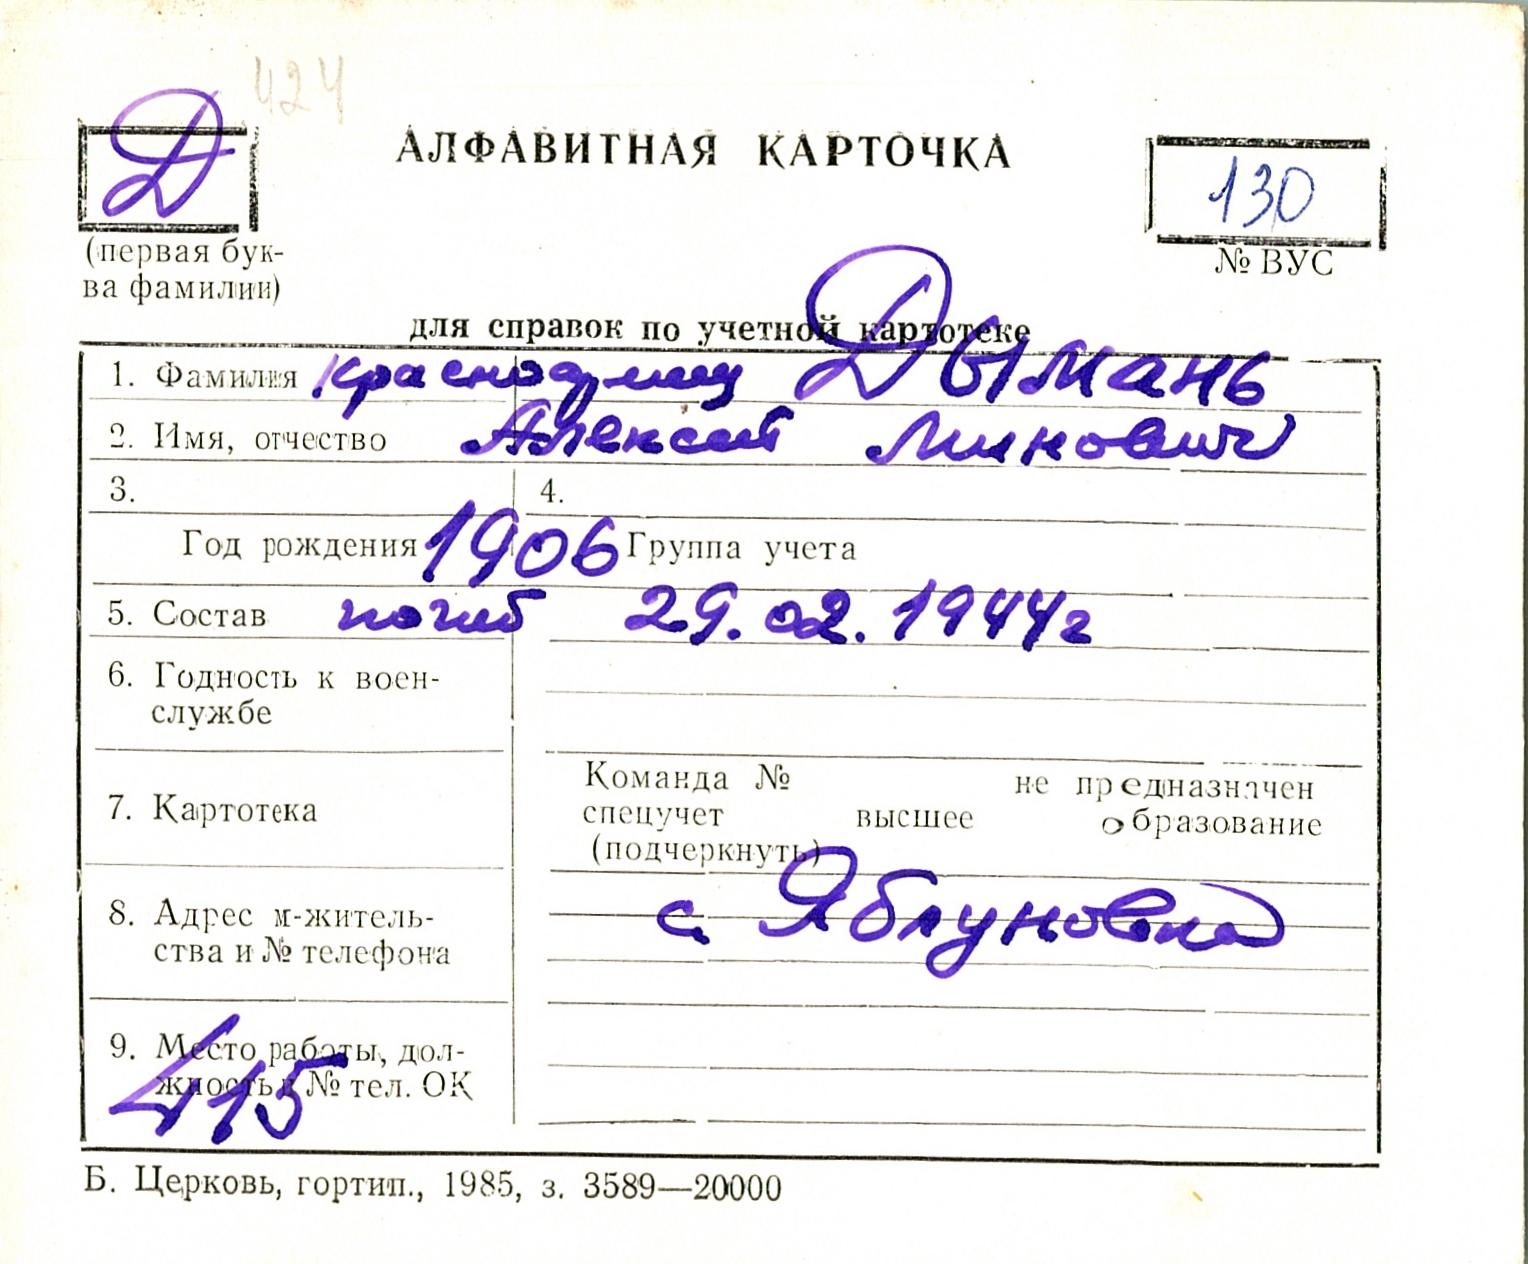 424
Д
АЛФАВИТНАЯ КАРТОЧКА
130
(первая бук-
ва фамилии)
№ ВУС
для справок по учетной картотеке
1. Фамилия красноармеец Дымань
2. Имя, отчество Алексей Минович
3. 4.
Год рождения 1906 Группа учета
5. Состав погиб 29.02.1944г
6. Годность к воен-
службе
Команда № не предназначен
7. Картотека
спецучет высшее образование
(подчеркнуть)
8. Адрес м-житель-
ства и № телефона
с. Яблуновка
9. Место работы, дол-
жность и № тел. ОК
415
Б. Церковь, гортип., 1985, з. 3589—20000